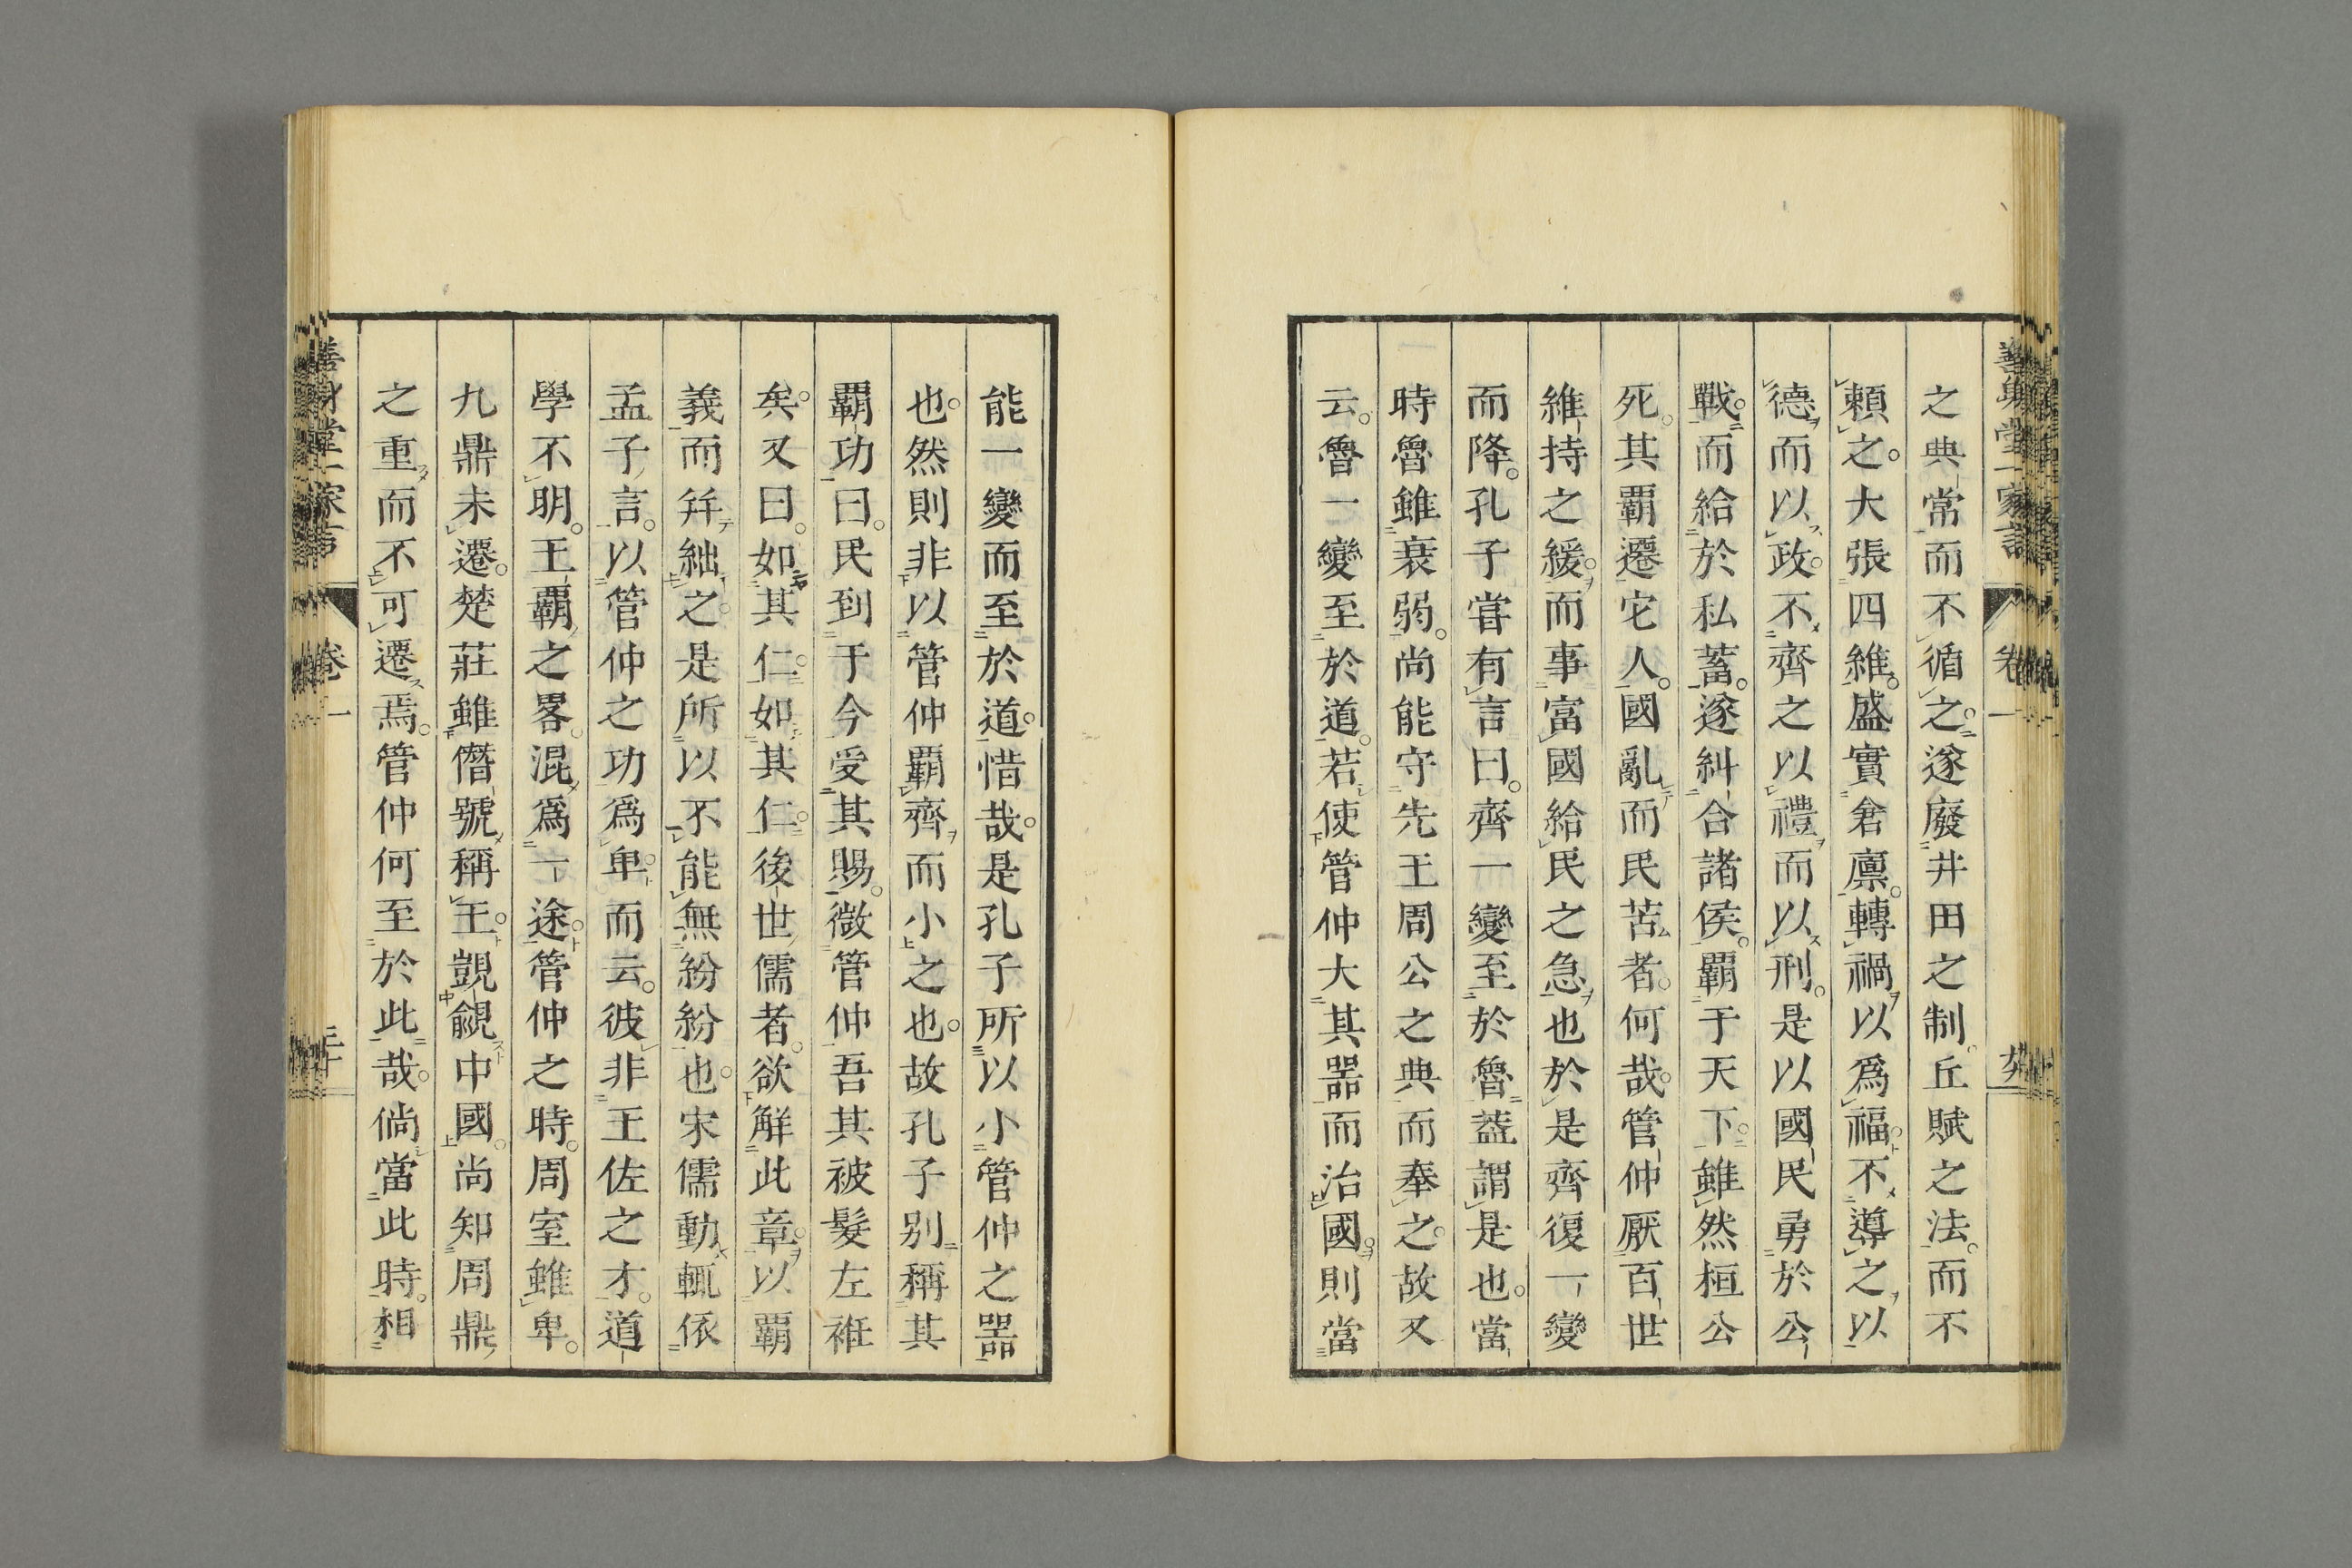 之典常而不循之遂廢井田之制丘賦之法而不
賴之大張四維盛實倉廪轉禍以爲福不導之以
德而以政不齊之以禮而以刑是以國民勇於公
戰而給於私蓄遂糾合諸侯覇于天下雖然桓公
死其覇遷它人國亂而民苦者何哉管仲厭百世
維持之緩而事富國給民之急也於是齊復一變
而降孔子甞有言曰齊一變至於魯葢謂是也當
時魯雖衰弱尚能守先王周公之典而奉之故又
云魯一變至於道若使管仲大其噐而治國則當
能一變而至於道惜哉是孔子所以小管仲之噐
也然則非以管仲覇齊而小之也故孔子別稱其
覇功曰民到于今受其賜微管仲吾其被髮左袵
矣又曰如其仁如其仁後世儒者欲解此章以覇
義而幷絀之是所以不能無紛紛也宋儒動輒依
孟子言以管仲之功爲卑而云彼非王佐之才道
學不明王覇之畧混爲一途管仲之時周室雖卑
九鼎未遷楚莊雖僭號稱王覬覦中國尚知周鼎
之重而不可遷焉管仲何至於此哉倘當此時相
卷一